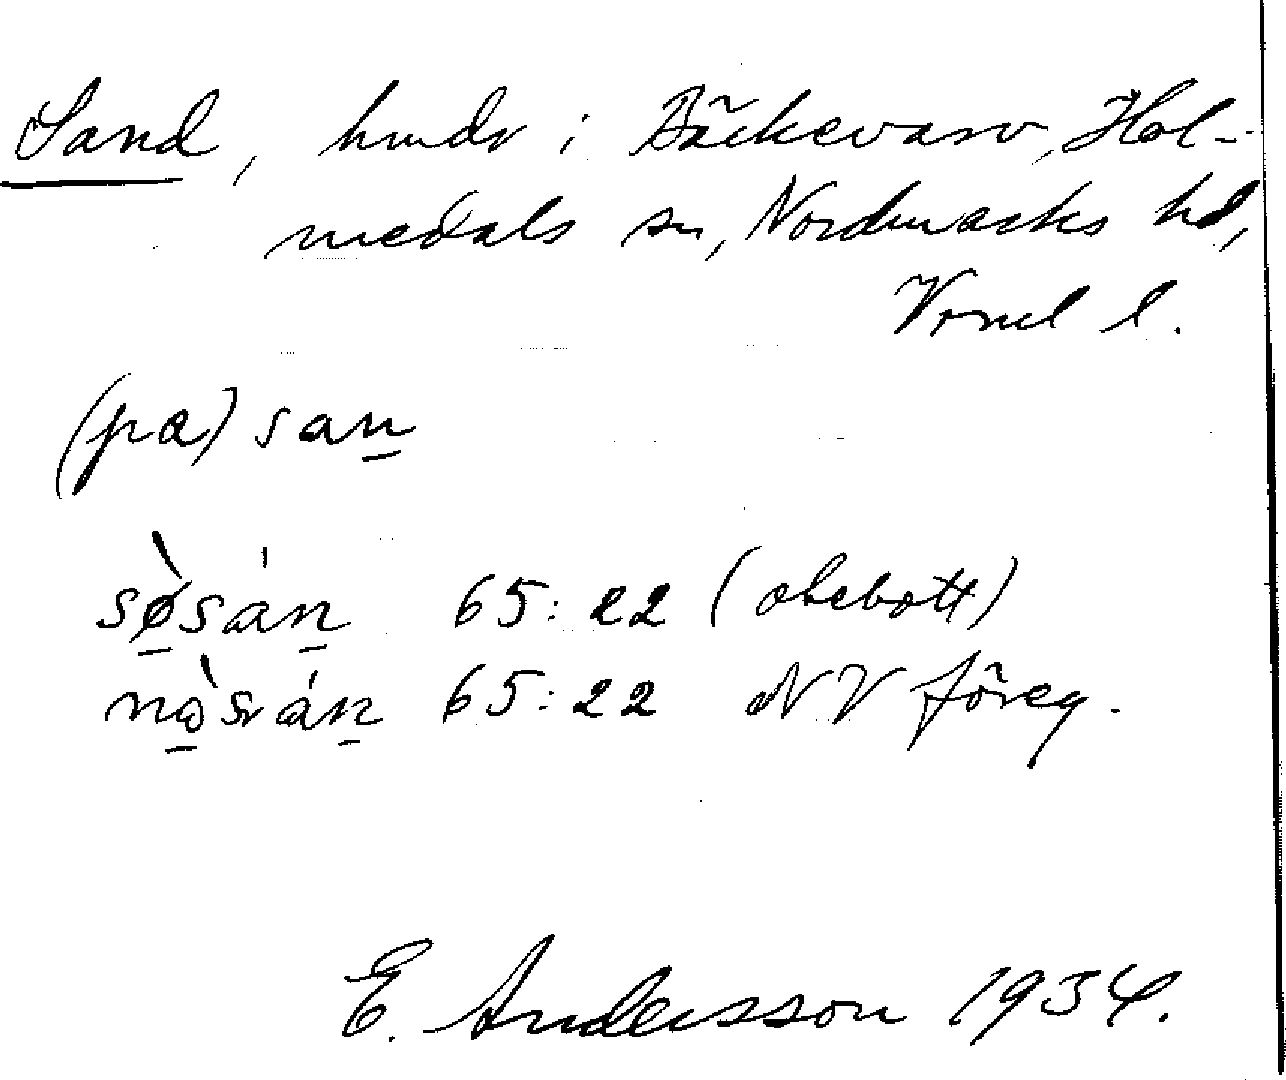 Sand, hmdr i Bäckevarv, Hol-
medals sn, Nordmarks hd,
Vrml l.
(pa) san̲
sø̲̀sán̲ 65:22 (obebott)
nò̲rsán̲ 65:22 NV föreg.
E. Andersson 1934.